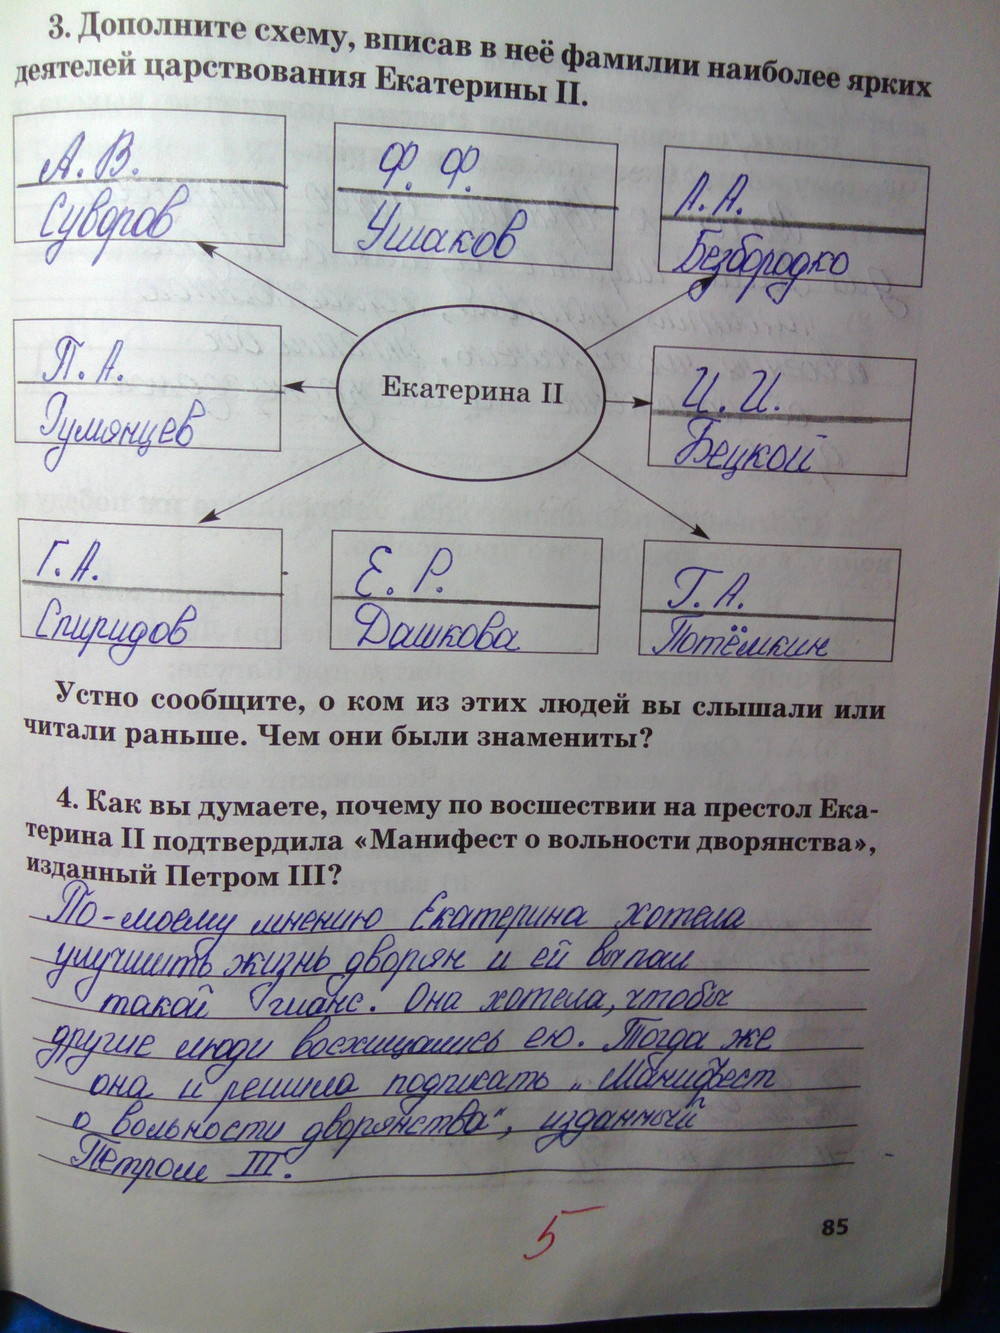 3. Дополните схему, вписав в неё фамилии наиболее ярких
деятелей царствования Екатерины II.
А. В.
Суворов
Ф. Ф.
Ушаков
А. А.
Безбородко
П. А.
Румянцев
Екатерина II
И. И.
Бецкой
Г. А.
Спиридов
Е. Р.
Дашкова
Г. А.
Потёмкин
Устно сообщите, о ком из этих людей вы слышали или
читали раньше. Чем они были знамениты?
4. Как вы думаете, почему по восшествии на престол Ека-
терина II подтвердила «Манифест о вольности дворянства»,
изданный Петром III?
По-моему мнению Екатерина хотела
улучшить жизнь дворян и ей выпал
такой шанс. Она хотела, чтобы
другие люди восхищались ею. Тогда же
она и решила подписать „Манифест
о вольности дворянства", изданный
Петром III.
5
85